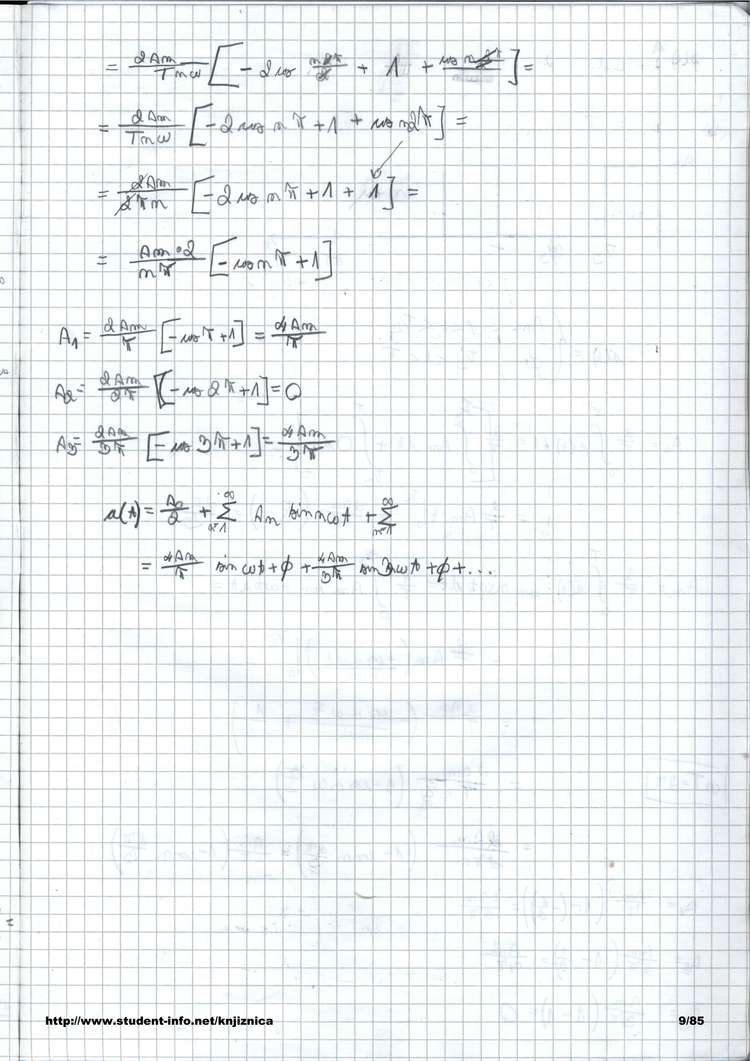 = 2Am/Tnω [ - 2cos n2π/2 + 1 + cos n2π ] =
= 2Am/Tnω [ -2cos nπ + 1 + cos n2π ] =
= 2Am/2πn [ -2cos nπ + 1 + 1 ] =
= Am·2/nπ [ - cos nπ + 1 ]
A1 = 2Am/π [ -cos π + 1 ] = 4Am/π
A2 = 2Am/2π [ -cos 2π + 1 ] = 0
A3 = 2Am/3π [ -cos 3π + 1 ] = 4Am/3π
a(t) = A0/2 + ∞ Σ n=1 An sin nωt + ∞ Σ n=1
= 4Am/π sin ωt + ϕ + 4Am/3π sin 3ωt + ϕ + ...
http://www.student-info.net/knjiznica 9/85